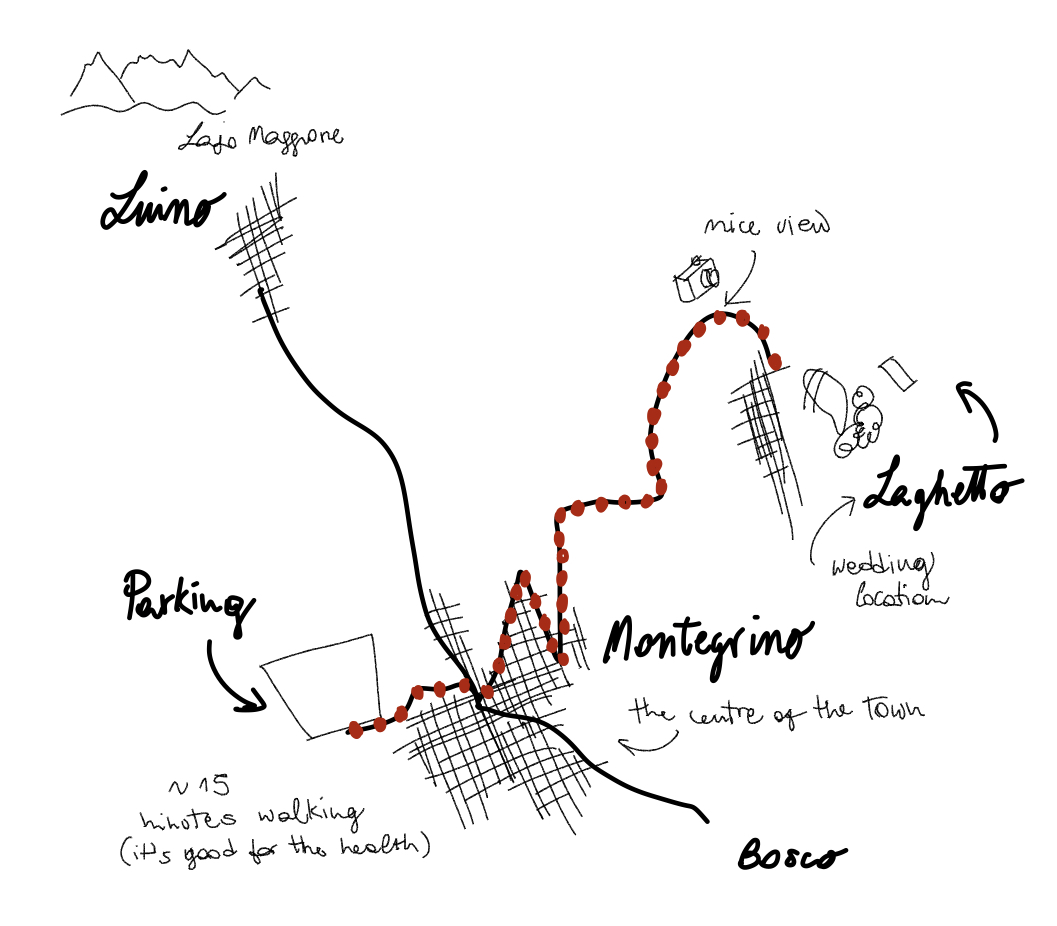 Lago Maggiore
Luino
nice view
Laghetto
wedding
location
Parking
Montegrino
the centre of the town
~ 15
minutes walking
(it's good for the health)
Bosco